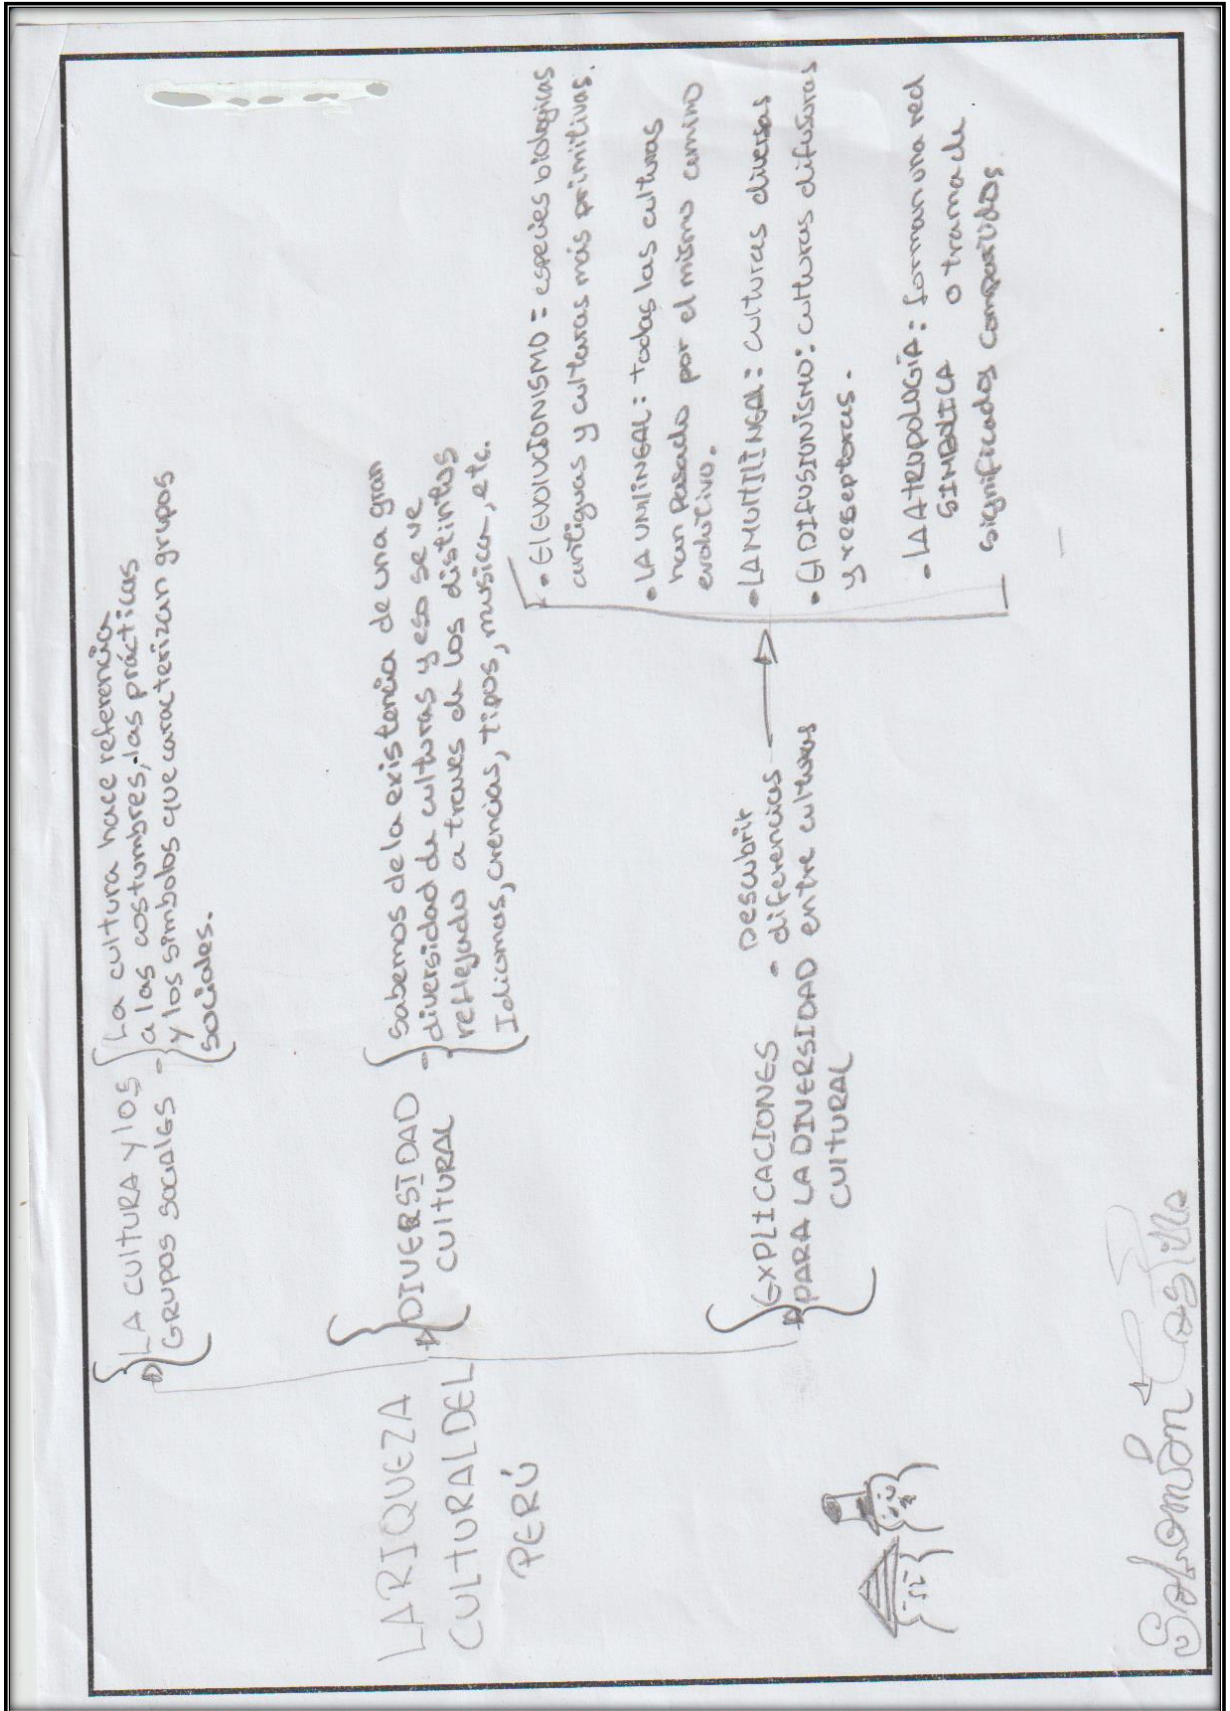 LA RIQUEZA
CULTURAL DEL
PERÚ
LA CULTURA Y LOS
GRUPOS SOCIALES -
La cultura hace referencia
a las costumbres, las prácticas
y los símbolos que caracterizan grupos
sociales.
DIVERSIDAD -
CULTURAL
Sabemos de la existencia de una gran
diversidad de culturas y eso se ve
reflejado a traves de los distintos
Idiomas, crencias, tipos, musica, etc.
EXPLICACIONES -
PARA LA DIVERSIDAD
CULTURAL
Descubrir
diferencias
entre culturas
• El EVOLUCIONISMO = especies biologicas
antiguas y culturas más primitivas.
• LA UNILINEAL: todas las culturas
han pasado por el mismo camino
evolutivo.
• LA MULTILINEAL: culturas diversas
• El DIFUSIONISMO: culturas difusoras
y reseptoras.
• LA ATROPOLOGÍA: forman una red
SIMBOLICA o trama de
significados compartidos
Salomón Castillo